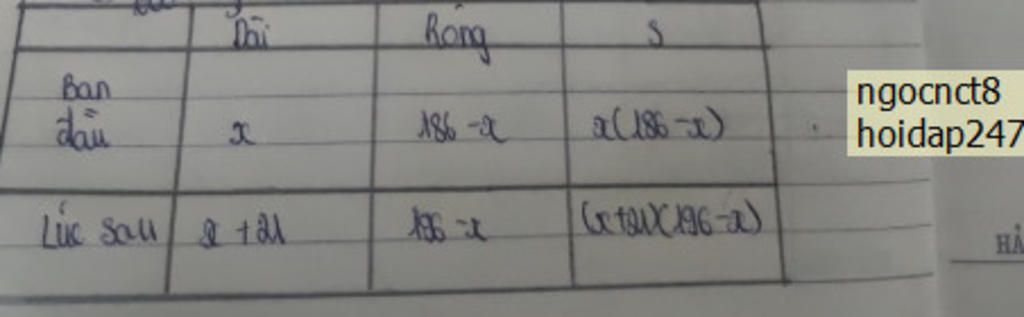 Dài Rộng S
Ban
đầu x 186-x x(186-x)
Lúc sau x+21 196-x (x+21)(196-x)
ngocnct8
hoidap247
HẢ